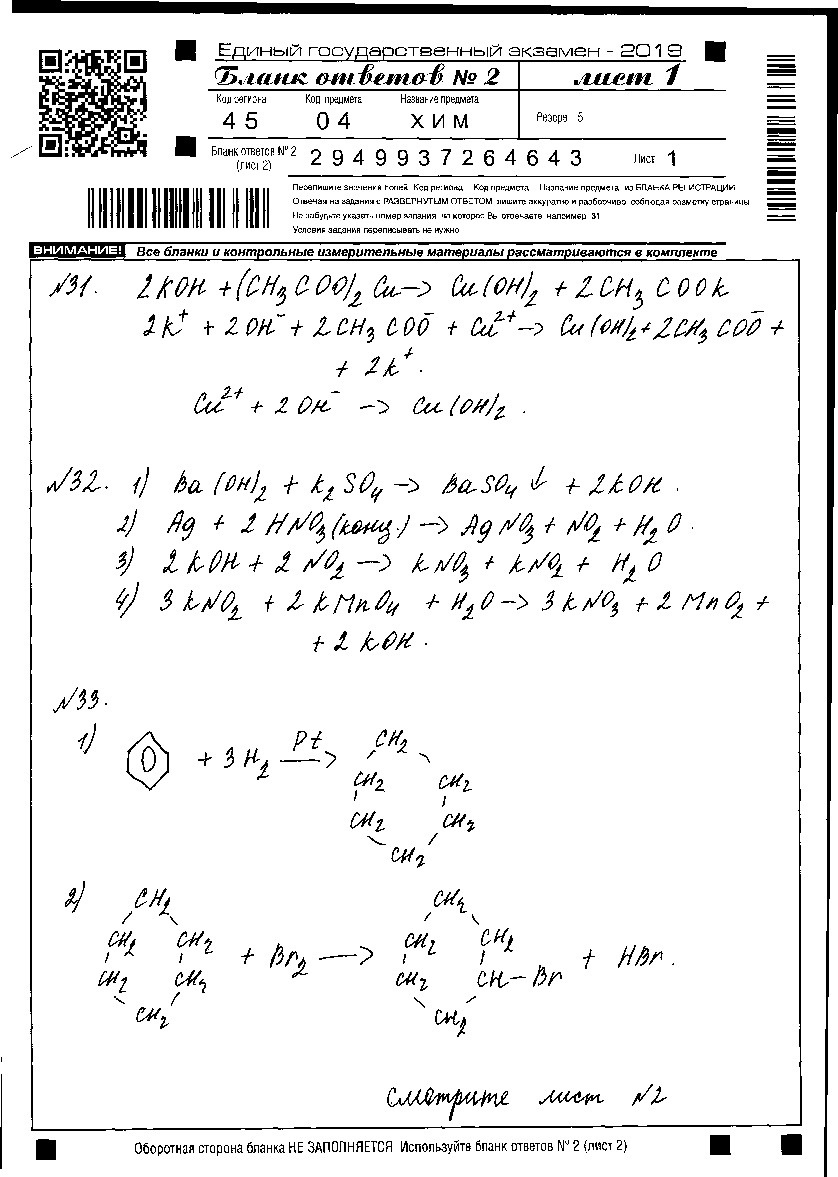 Единый государственный экзамен - 2019
Бланк ответов № 2 лист 1
Код региона Код предмета Название предмета
45 04 ХИМ Резерв - 5
Бланк ответов № 2 (лист 2) 2949937264643 Лист 1
Перепишите значения полей Код региона Код предмета Название предмета из БЛАНКА РЕГИСТРАЦИИ
Отвечая на задания с РАЗВЕРНУТЫМ ОТВЕТОМ пишите аккуратно и разборчиво соблюдая разметку страницы
Не забудьте указать номер задания на которое Вы отвечаете например 31
Условия задания переписывать не нужно
ВНИМАНИЕ! Все бланки и контрольные измерительные материалы рассматриваются в комплекте
№31. 2KOH + (CH3COO)2Cu -> Cu(OH)2 + 2CH3COOK
2K+ + 2OH- + 2CH3COO- + Cu2+ -> Cu(OH)2 + 2CH3COO- +
+ 2K+.
Cu2+ + 2OH- -> Cu(OH)2.
№32. 1) Ba(OH)2 + K2SO4 -> BaSO4↓ + 2KOH.
2) Ag + 2HNO3(конц.) -> AgNO3 + NO2 + H2O.
3) 2KOH + 2NO2 -> KNO3 + KNO2 + H2O
4) 3KNO2 + 2KMnO4 + H2O -> 3KNO3 + 2MnO2 +
+ 2KOH.
№33.
1) + 3H2 Pt -> CH2
CH2 CH2
CH2 CH2
CH2
2) CH2 CH2
CH2 CH2 + Br2 -> CH2 CH2 + HBr.
CH2 CH2 CH2 CH-Br
CH2 CH2
Смотрите лист №2
Оборотная сторона бланка НЕ ЗАПОЛНЯЕТСЯ Используйте бланк ответов № 2 (лист 2)